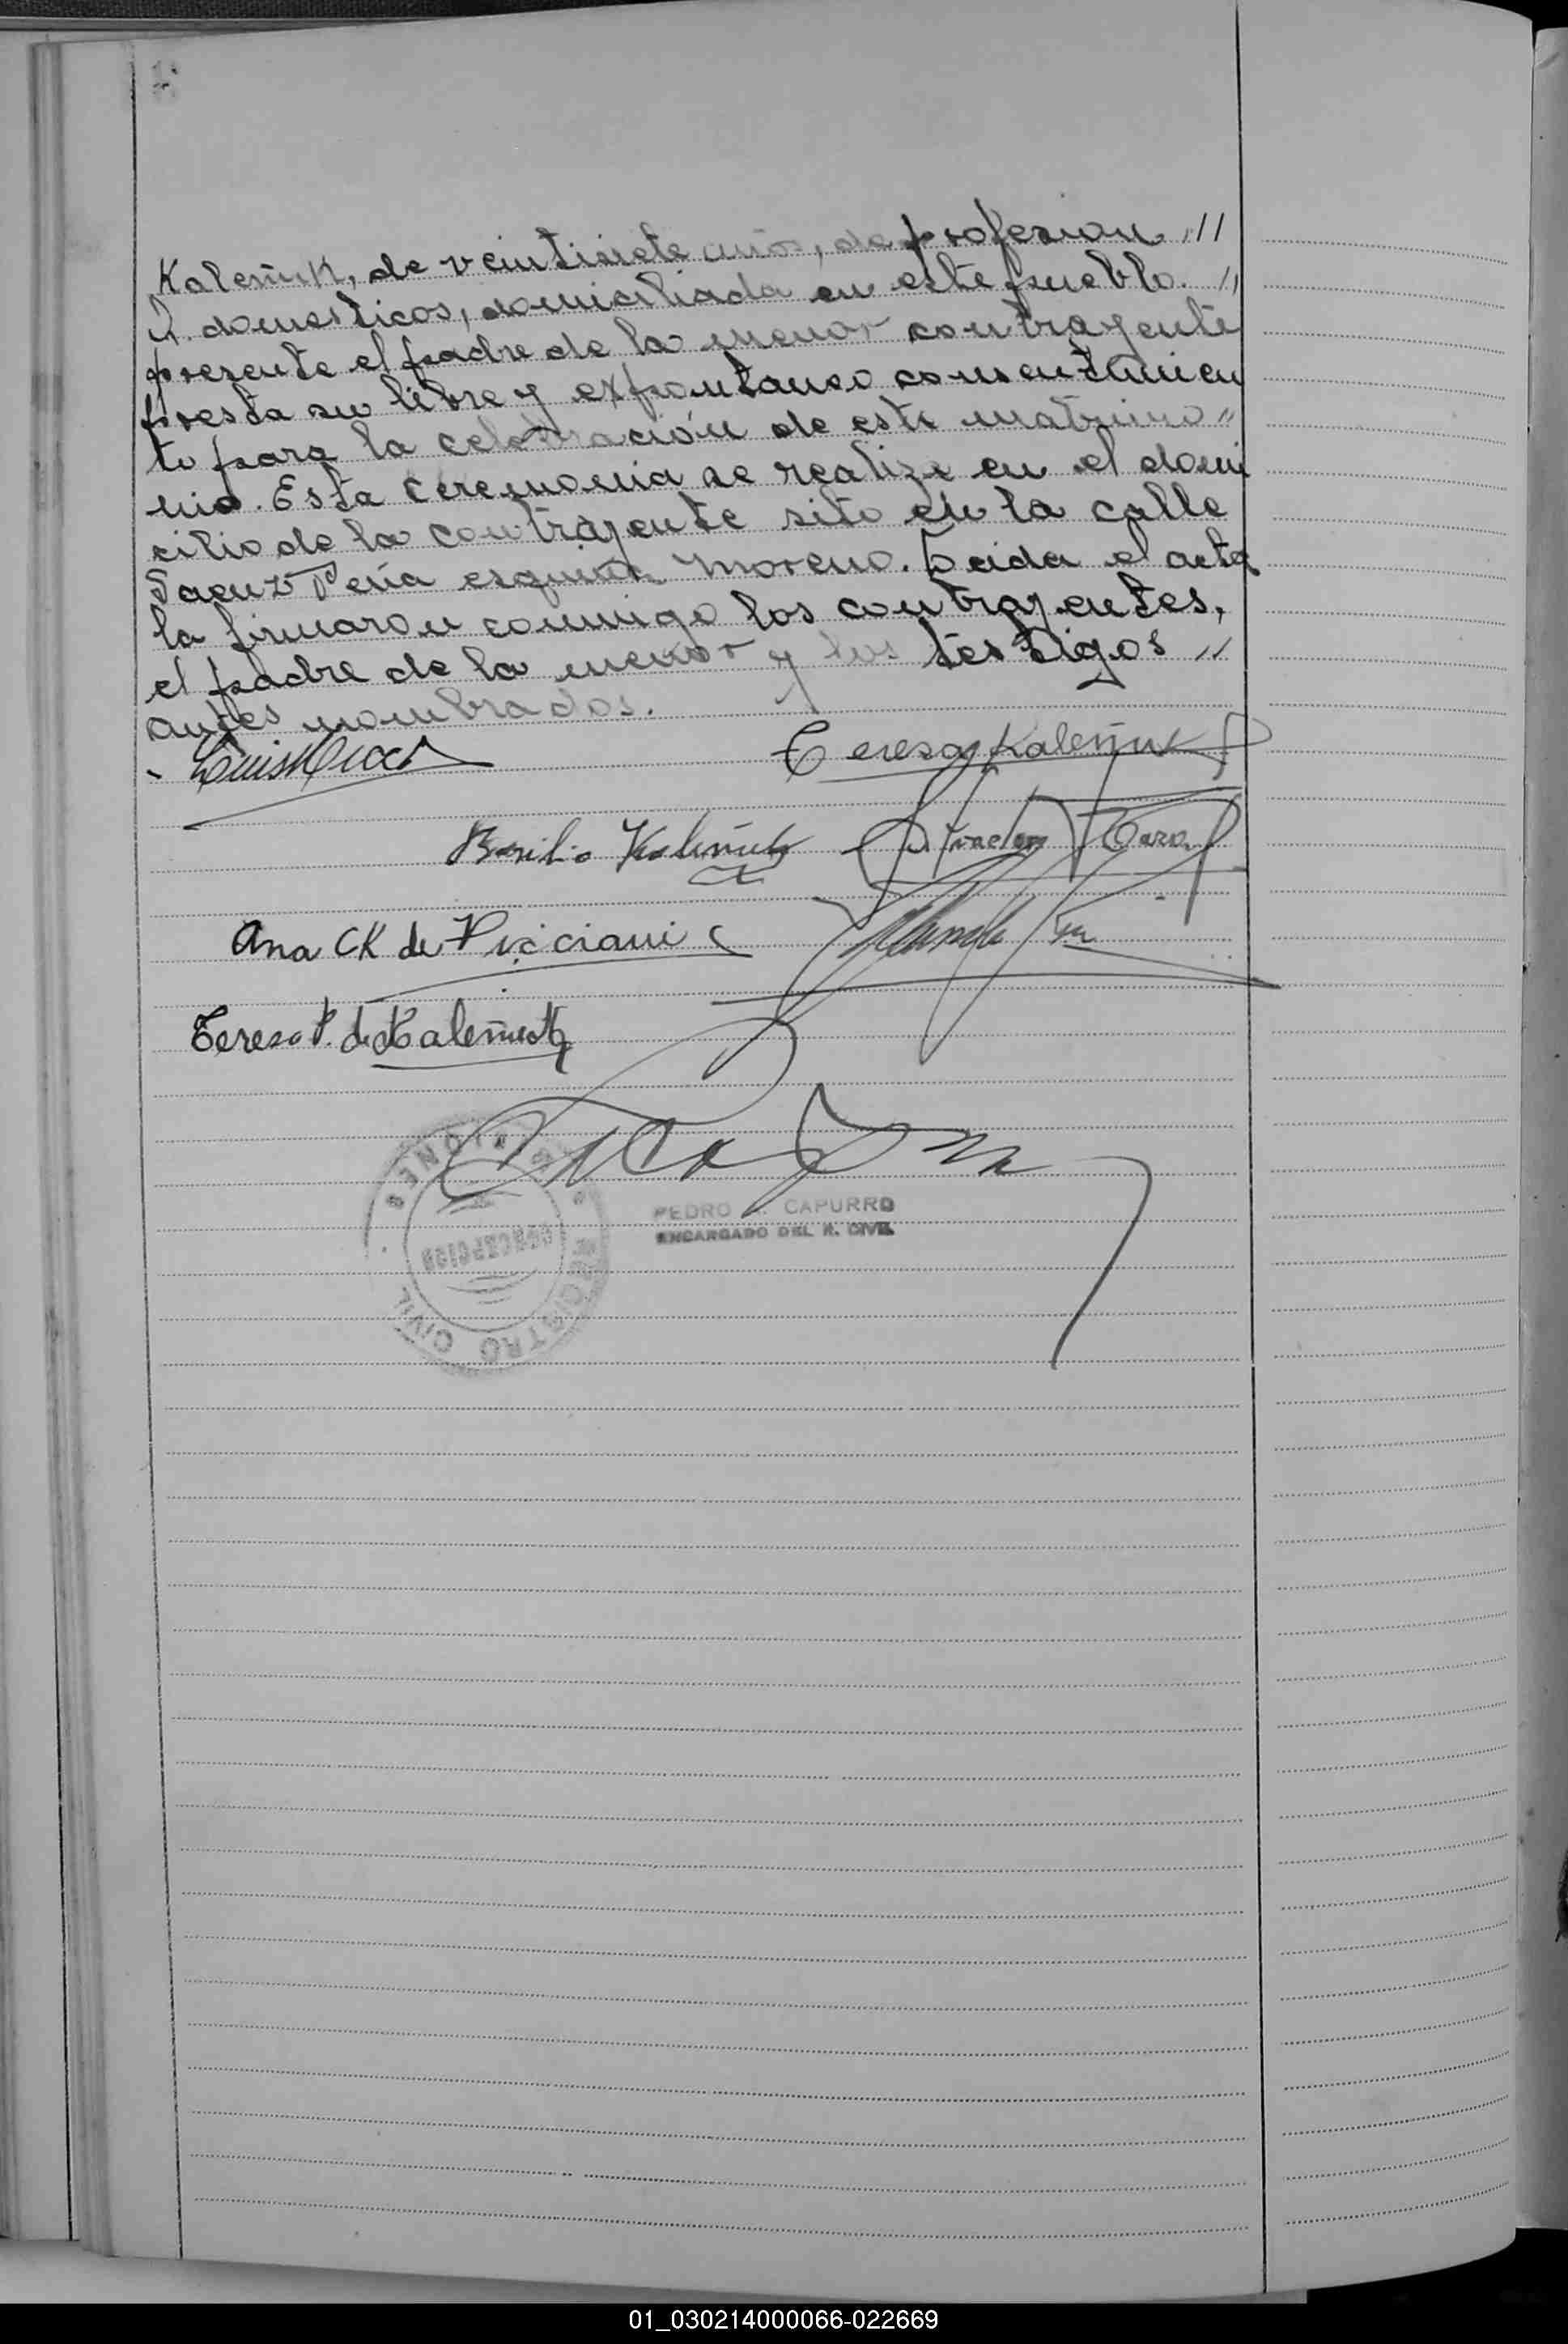 Kaleñuk, de veintisiete años, de profesion //
Q. domesticos, domiciliada en este pueblo. //
presente el padre de la menor contrayente
presta su libre y expontaneo consentimien
to para la celebración de este matrimo "
nio. Esta ceremonia se realiza en el domi
cilio de la contrayente sito en la calle
Saenz Peña esquina Moreno. Leida el acta
la firmaron conmigo los contrayentes,
el padre de la menor y los testigos "
antes nombrados.
Luis
Teresa Kaleñuk
Basilio Kaleñuk
Ana CK de Picciani
Teresa P. de Kaleñuk
MISIONES
CONCEPCION
REGISTRO CIVIL
PEDRO CAPURRO
ENCARGADO DEL R. CIVIL
01_030214000066-022669